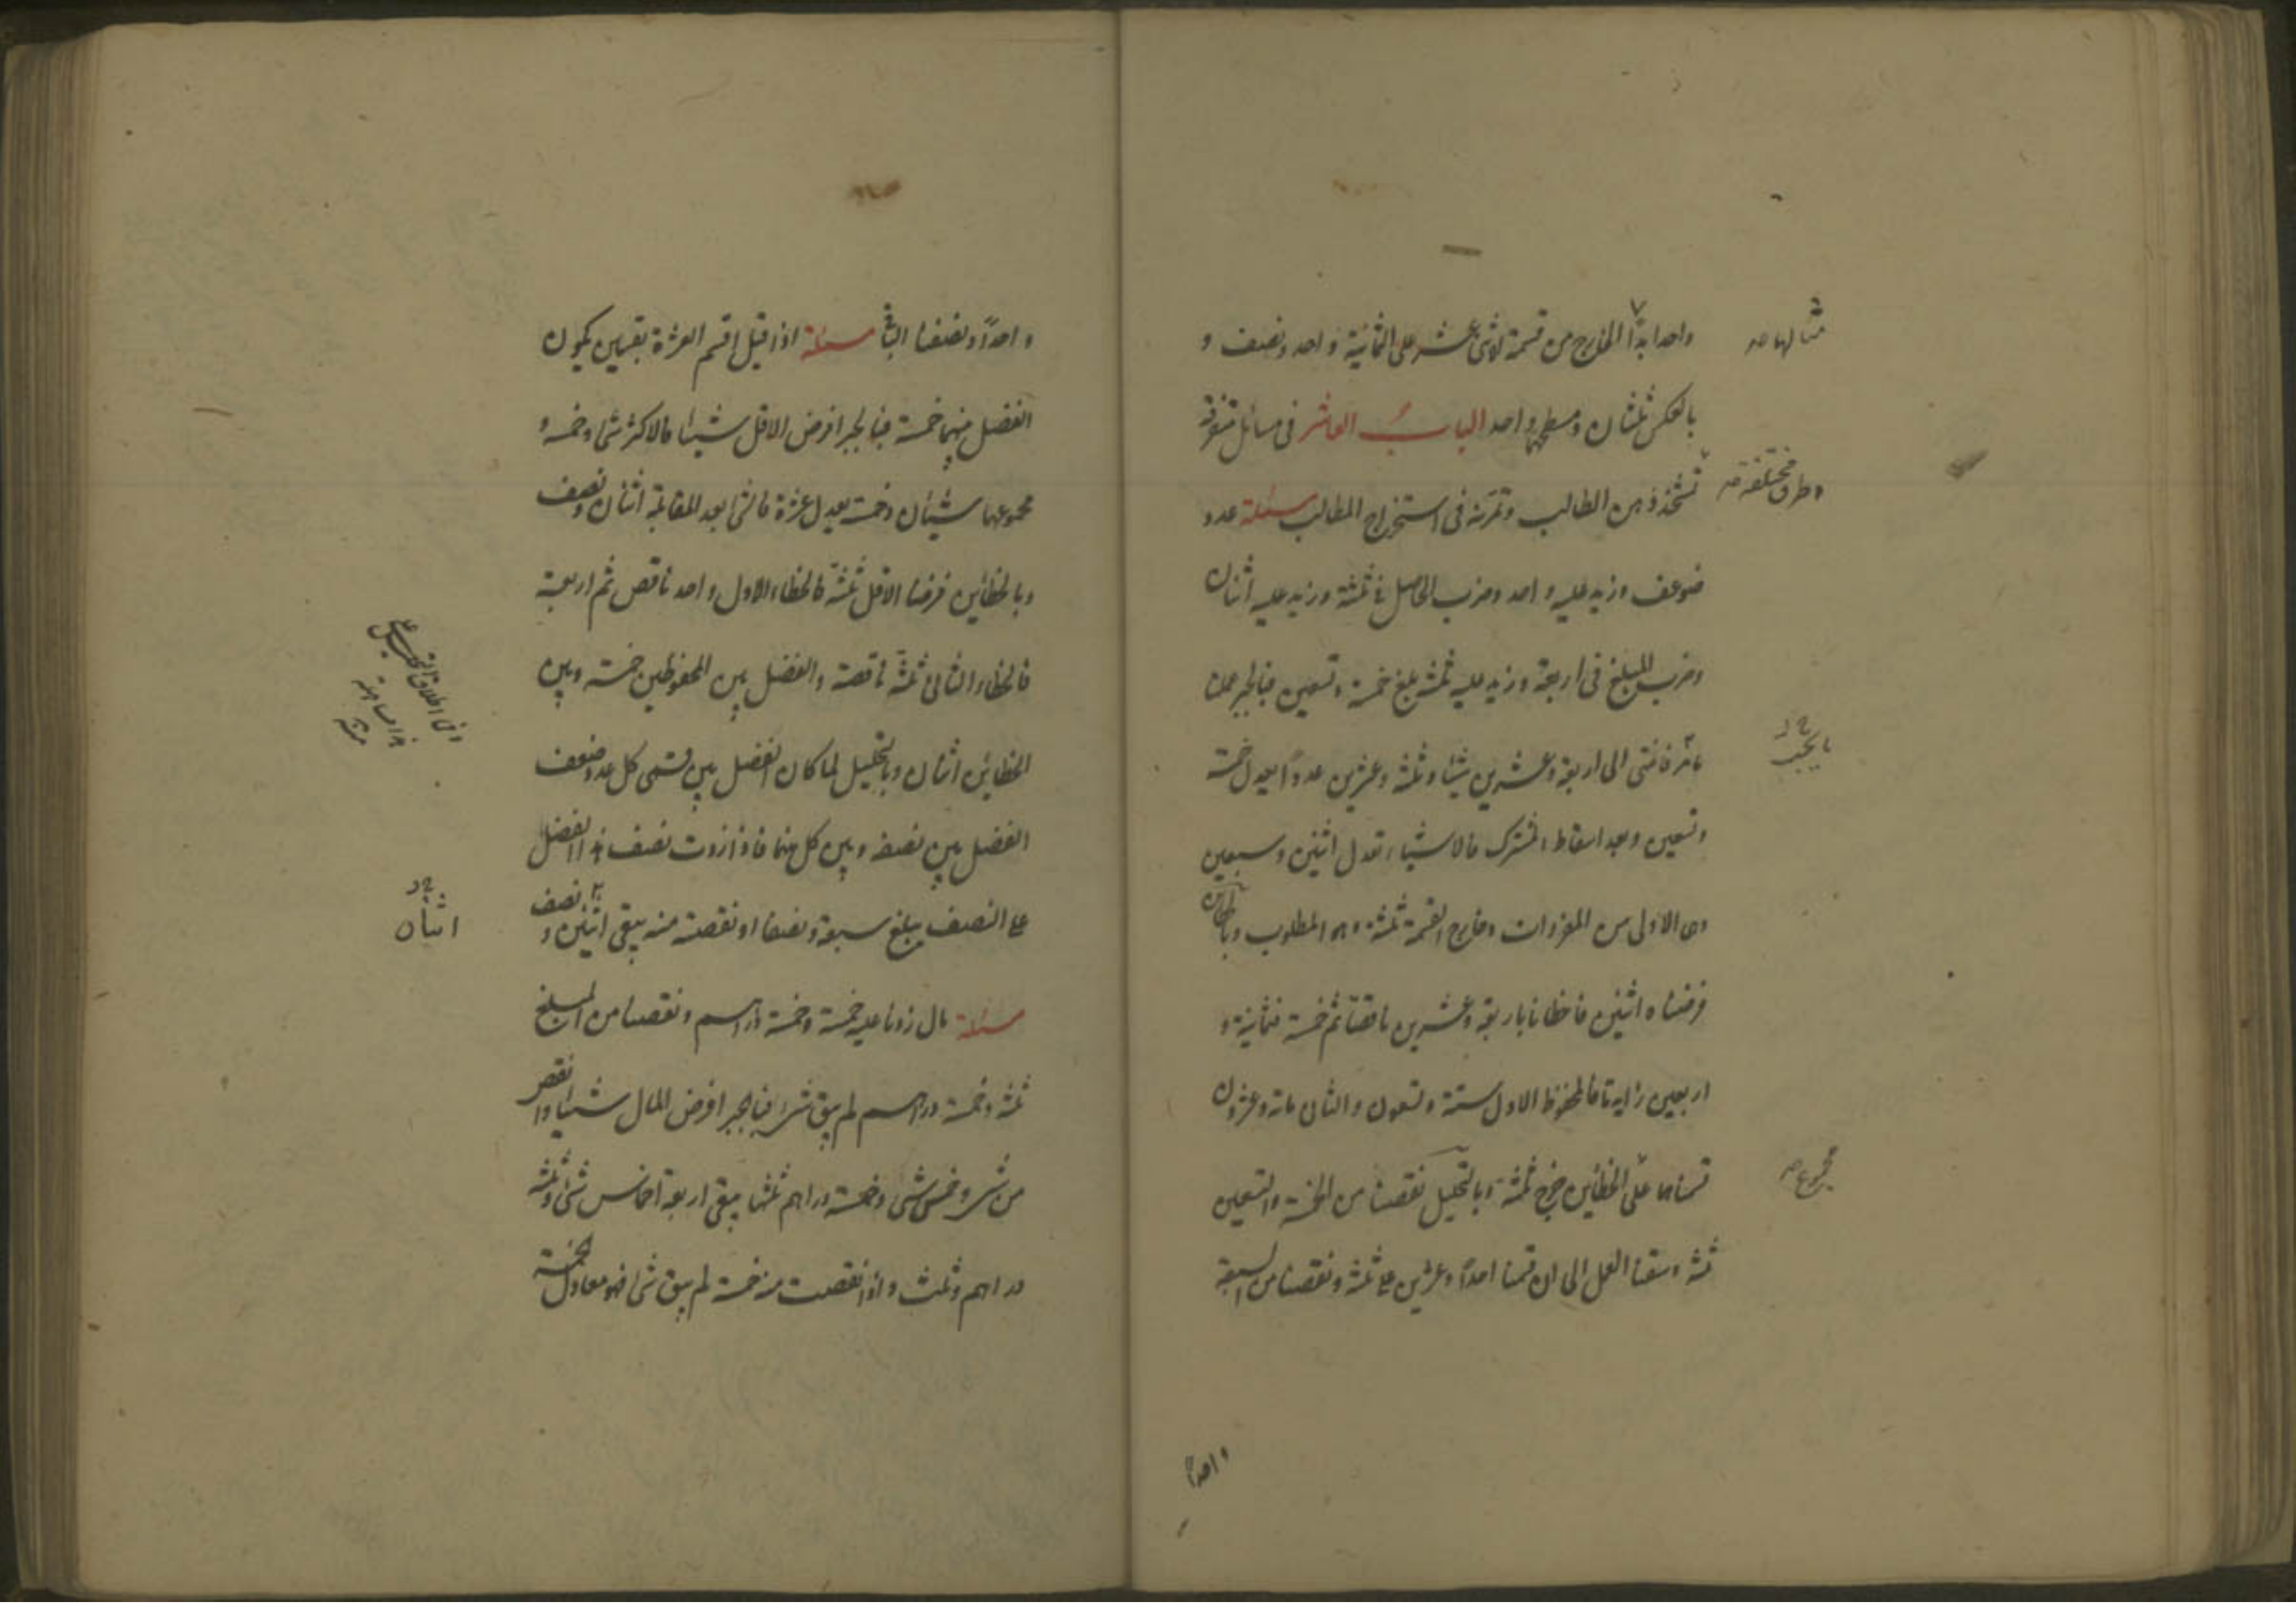 واحد ابدا الخارج من قسمة الاثنى عشر على الثمانية واحد ونصف و
مثالها صح
بالعكس ثلثان ومسطحهما واحد الباب العاشر فى مسائل متفرقة
وطرق مختلفة صح
تشحذ ذهن الطالب وتمرنه فى استخراج المطالب مسئلة عدد
ضوعف وزيد عليه واحد وضرب الحاصل فى ثلثة وزيد عليه اثنان
وضرب المبلغ فى اربعة وزيد عليه ثلثة بلغ خمسة وتسعين فبالجبر عملنا
ما مر فانتهى الى اربعة وعشرين شيئا وثلثة وعشرين عددا يعدل خمسة
وتسعين وبعد اسقاط المشترك فالاشياء تعدل اثنين وسبعين
وهى الاولى من المفردات وخارج القسمة ثلثة وهو المطلوب وبالخطائين
فرضناه اثنين فاخطانا باربعة وعشرين ناقصة ثم خمسة فثمانية و
اربعين زايدة فالمحفوظ الاول ستة وتسعون والثانى مائة وعشرون
قسمناهما على الخطائين خرج ثلثة وبالتحليل نقصنا من الخمسة والتسعين
مجموع صح
ثلثة وسقنا العمل الى ان قسمنا احدا وعشرين على ثلثة ونقصنا من السبعة
واحدا
واحدا ونصفنا الباقى مسئلة اذا قيل اقسم العشرة بقسمين يكون
الفضل بينهما خمسة فبالجبر افرض الاقل شيئا فالاكثر شئ وخمسة و
مجموعهما شيئان وخمسة يعدل عشرة فالشئ بعد المقابلة اثنان ونصف
وبالخطائين فرضنا الاقل ثلثة فالخطاء الاول واحد ناقص ثم اربعة
فالخطاء الثانى ثلثة ناقصة والفضل بين المحفوظين خمسة وبين
الخطائين اثنان وبالتحليل لما كان الفضل بين قسمى كل عدد ضعف
الفضل بين نصفه وبين كل منهما فاذا زدت نصف هذا الفضل
على النصف يبلغ سبعة ونصفا او نقصته منه يبقى اثنين و نصف
اثنان
مسئلة مال زدنا عليه خمسة وخمسة دراهم ونقصنا من المبلغ
ثلثه وخمسة دراهم لم يبق شئ فبالجبر افرض المال شيئا وانقص
من شئ وخمس شئ وخمسة دراهم ثلثها يبقى اربعة اخماس شئ وثلثة
دراهم وثلث واذا نقصت منه خمسة لم يبق شئ فهو معادل لخمسة